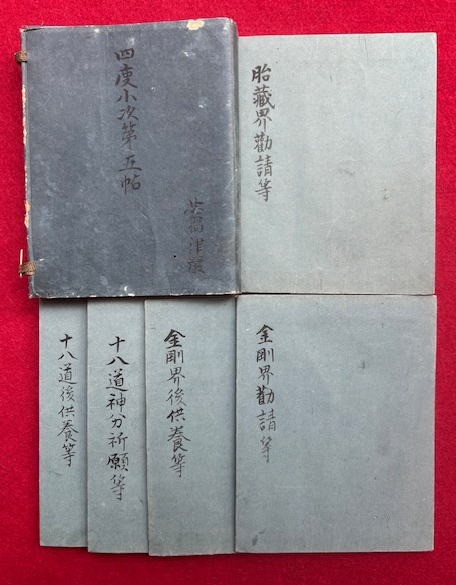 四度小次第五帖
胎藏界勸請等
金剛界勸請等
金剛界後供養等
十八道神分祈願等
十八道後供養等